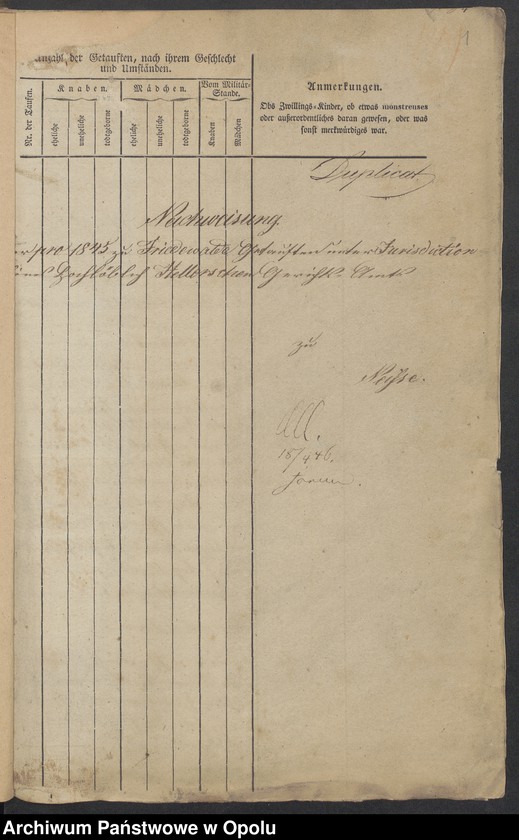 1
Anzahl der Getauften, nach ihrem Geschlecht
und Umständen.
Nr. der Taufen.
Knaben.
Mädchen.
Vom Militär-
Stande.
eheliche
uneheliche
todtgeborne
eheliche
uneheliche
todtgeborne
Knaben
Mädchen
Anmerkungen.
Obs Zwillings-Kinder, ob etwas monstreuses
oder außerordentliches daran gewesen, oder was
sonst merkwürdiges war.
Duplicat
Nachweisung
pro 1845 zu Friedewalde Getauften unter Jurisdiction
Hochlöblich Gericht-Amts
zu
Neisse.
18/4 46.
Archiwum Państwowe w Opolu